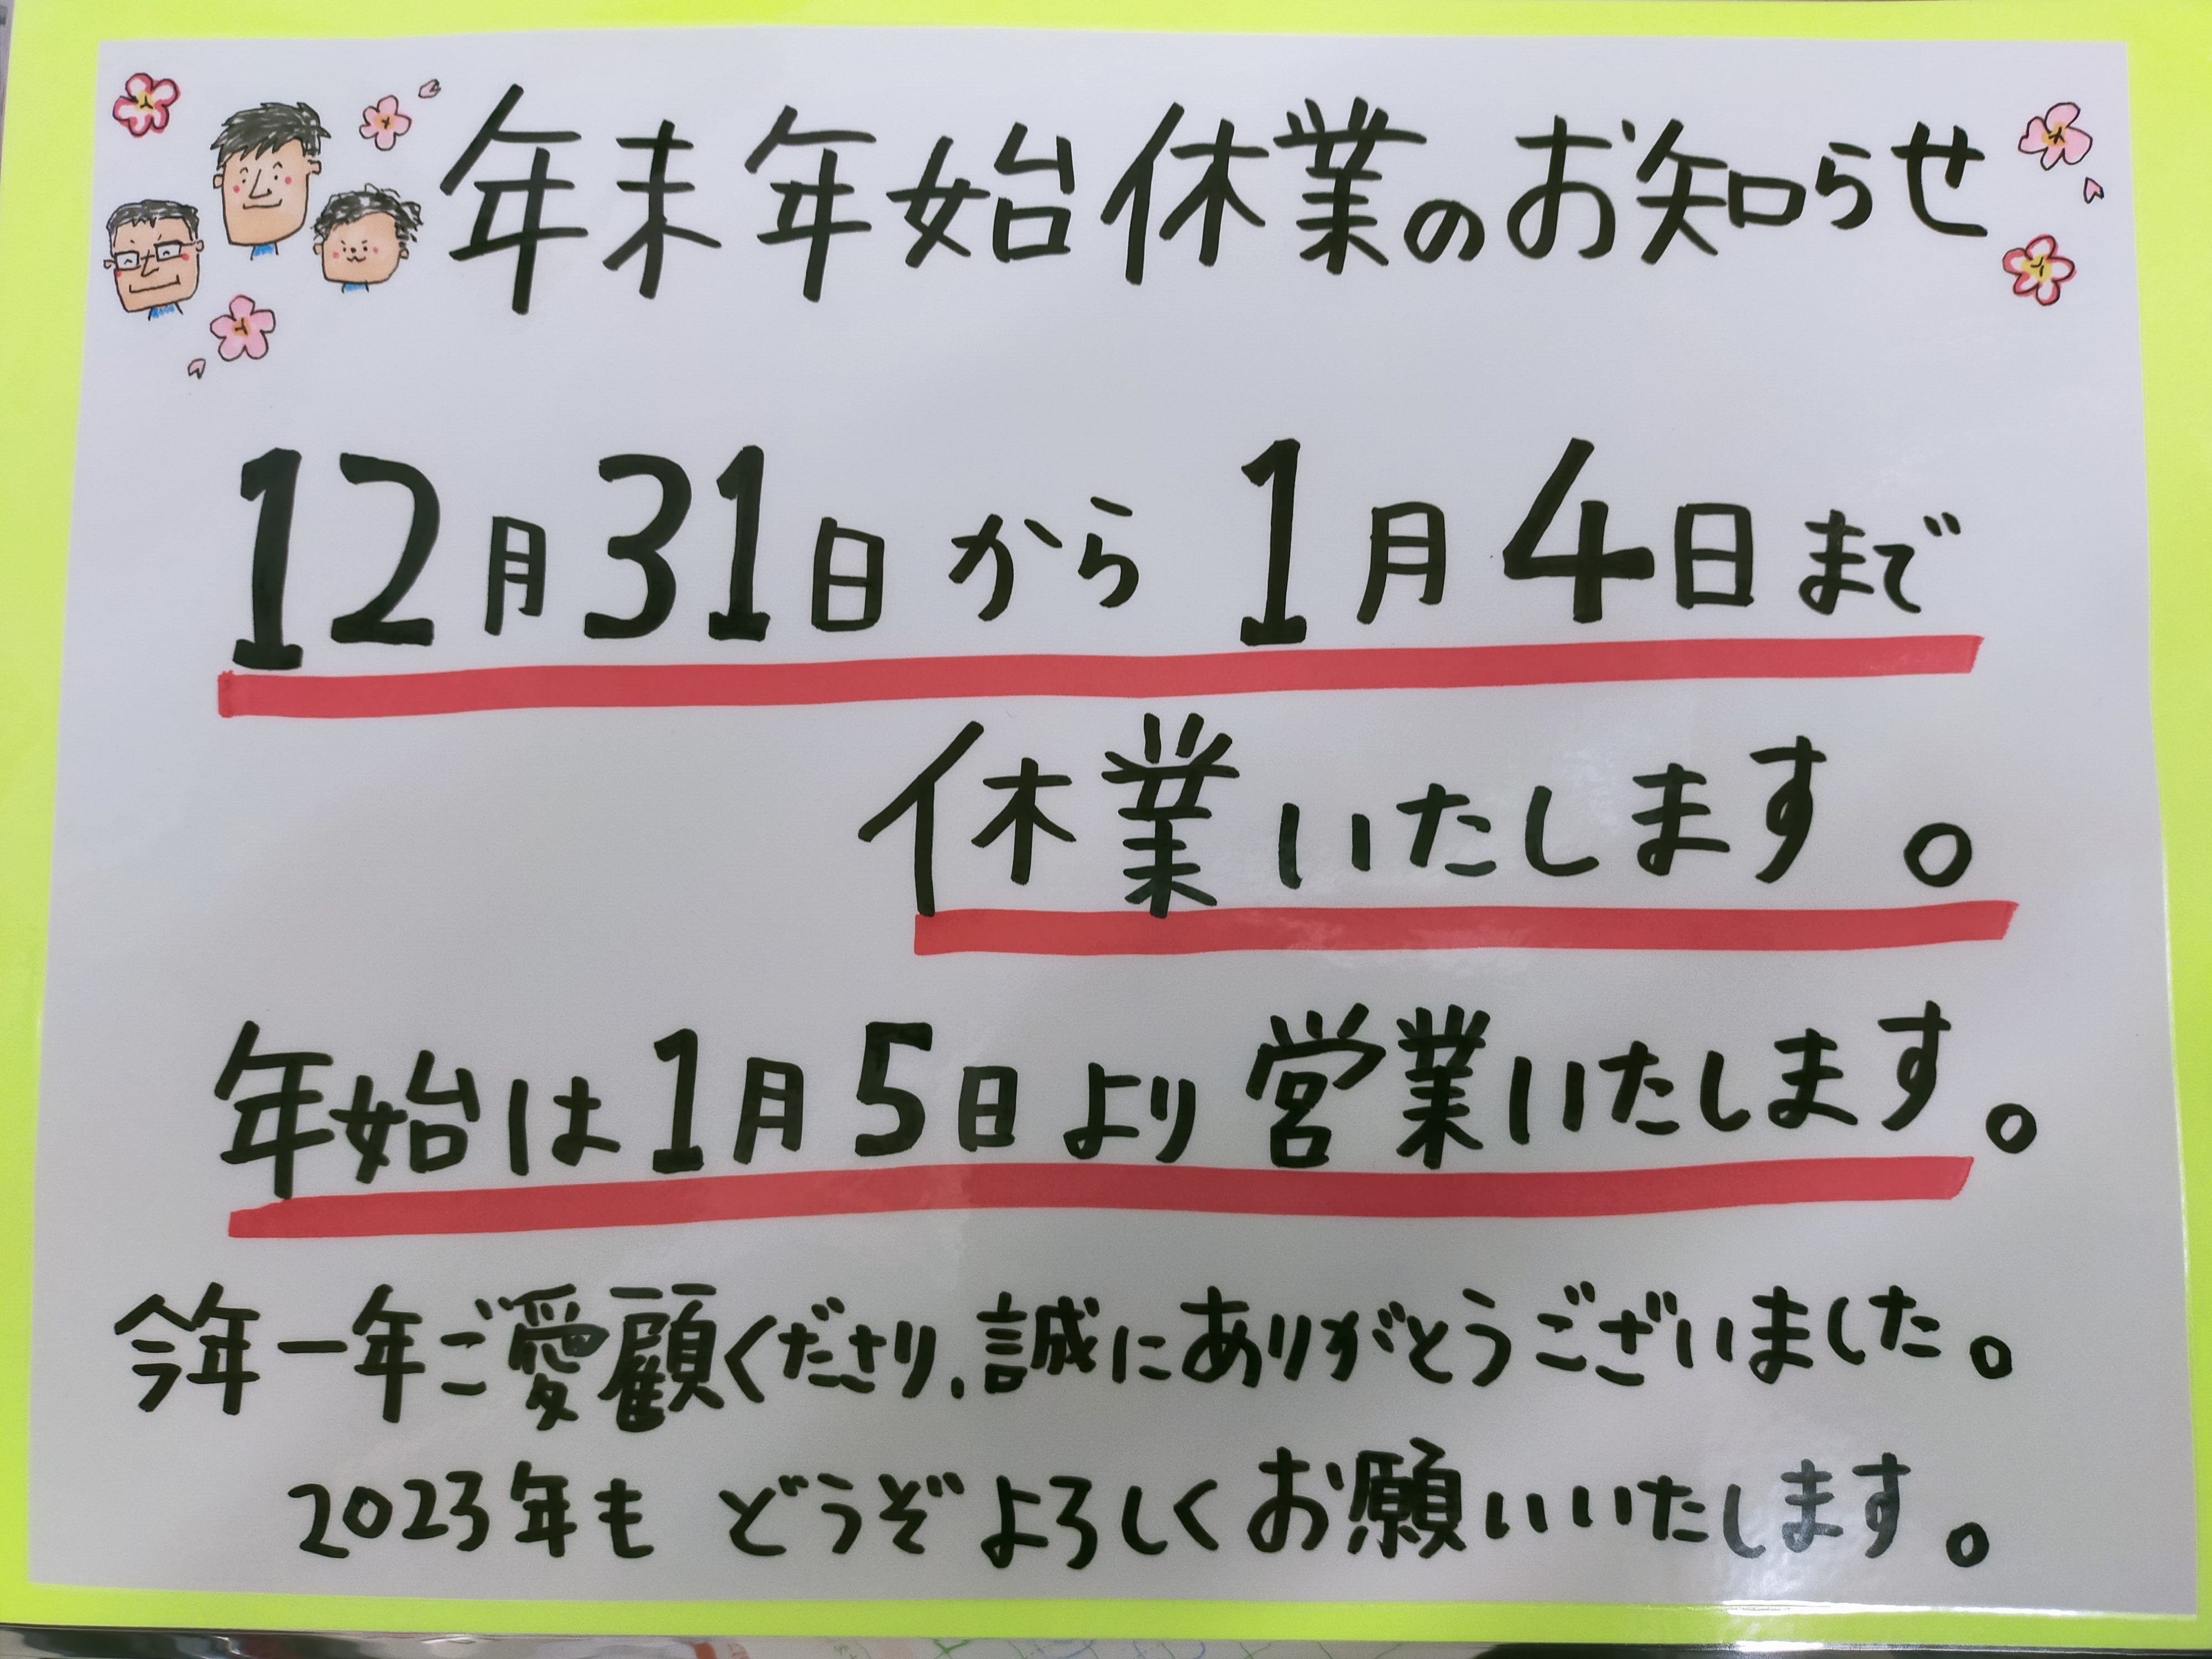 年末年始休業のお知らせ
12月31日から 1月4日まで
休業いたします。
年始は1月5日より営業いたします。
今年一年ご愛顧くださり、誠にありがとうございました。
2023年も どうぞよろしくお願いいたします。